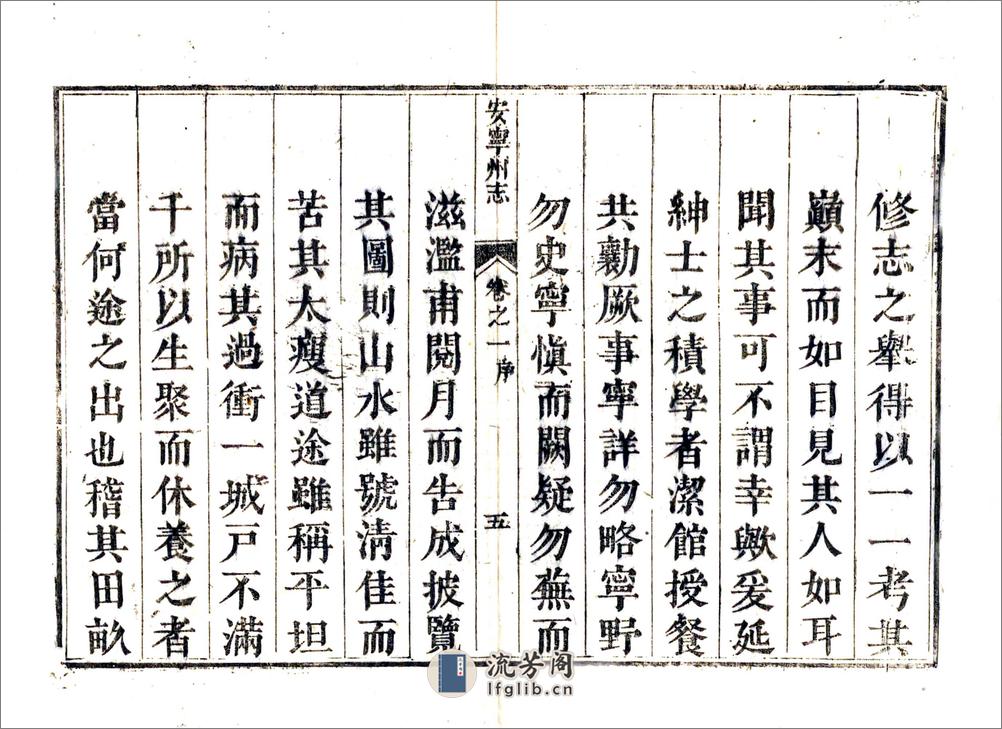 修志之舉得以一一考其
巔末而如目見其人如耳
聞其事可不謂幸歟爰延
紳士之積學者潔館授餐
共勷厥事寧詳勿略寧野
勿史寧慎而闕疑勿蕪而
安寧州志 卷之一序 五
滋濫甫閱月而告成披覽
其圖則山水雖號清佳而
苦其太瘦道途雖稱平坦
而病其過衝一城戸不滿
千所以生聚而休養之者
當何途之出也稽其田畝
流芳阁
lfglib.cn